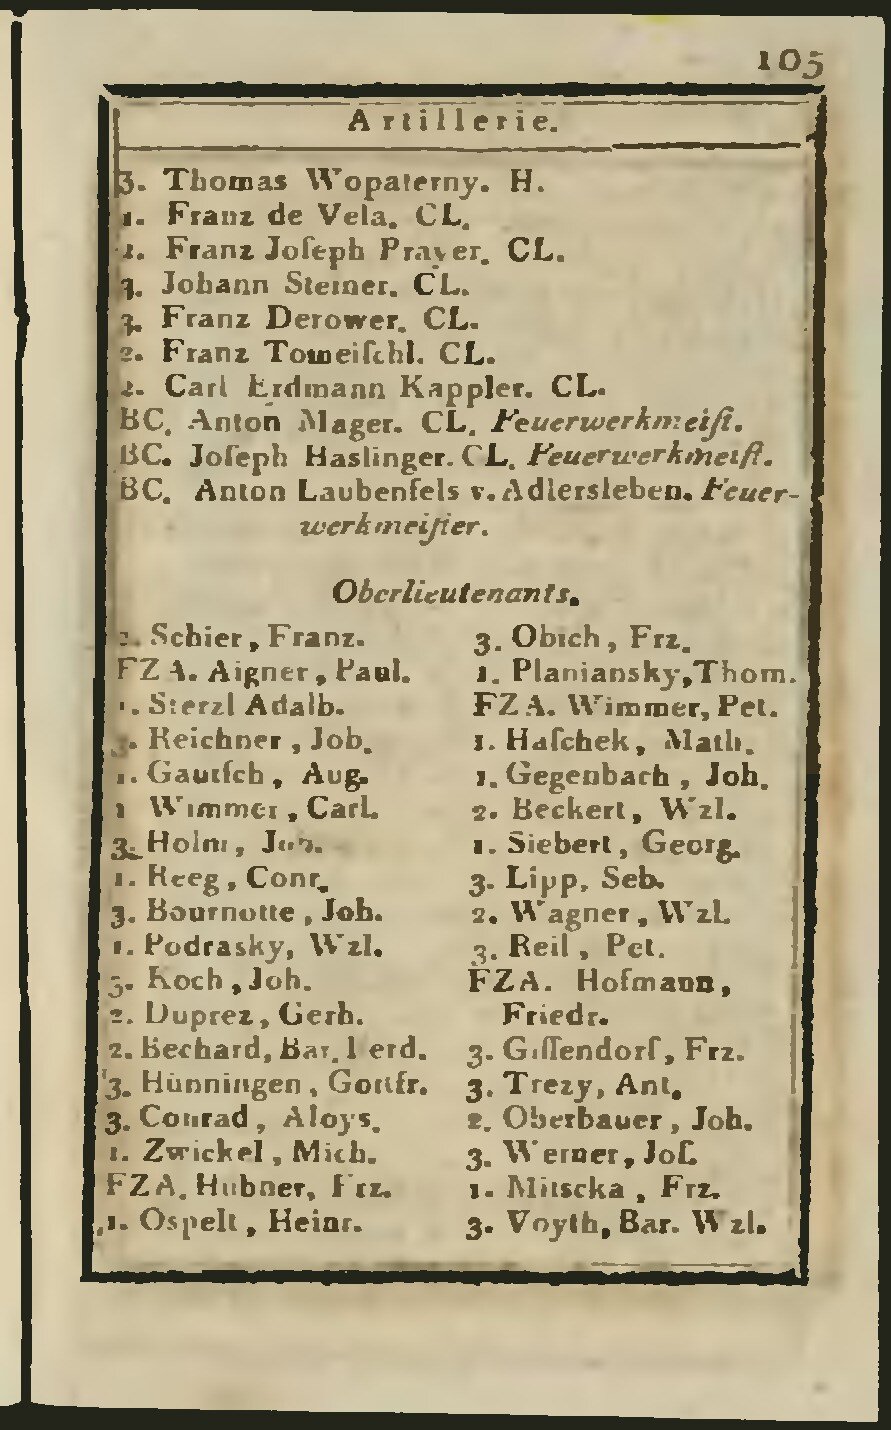 105
Artillerie.
3. Thomas Wopaterny. H.
1. Franz de Vela. CL.
Franz Joſeph Prayer. CL.
3. Johann Steiner. CL.
3. Franz Derower. CL.
2. Franz Tomeiſchl. CL.
Carl Erdmann Kappler. CL.
BC. Anton Mager. CL. Feuerwerkmeiſt.
BC. Joſeph Haslinger. CL. Feuerwerkmeiſt.
BC. Anton Laubenfels v. Adlersleben. Feuer-
werkmeiſter.
Oberlieutenants.
Schier, Franz.
FZA. Aigner, Paul.
1. Sterzl Adalb.
3. Reichner, Joh.
1. Gautſch, Aug.
1 Wimmer, Carl.
3. Holm, Joh.
1. Reeg, Conr.
3. Bournotte, Joh.
1. Podrasky, Wzl.
3. Koch, Joh.
2. Duprez, Gerh.
2. Bechard, Bar. Ferd.
3. Hünningen, Gottfr.
3. Conrad, Aloys.
1. Zwickel, Mich.
FZA. Hubner, Frz.
1. Ospelt, Heinr.
3. Obich, Frz.
1. Planiansky, Thom.
FZA. Wimmer, Pet.
1. Haſchek, Math.
1. Gegenbach, Joh.
2. Beckert, Wzl.
1. Siebert, Georg.
3. Lipp, Seb.
2. Wagner, Wzl.
3. Reil, Pet.
FZA. Hofmann,
Friedr.
3. Giſſendorf, Frz.
3. Trezy, Ant.
2. Oberbauer, Joh.
3. Werner, Joſ.
1. Mitscka, Frz.
3. Voyth, Bar. Wzl.